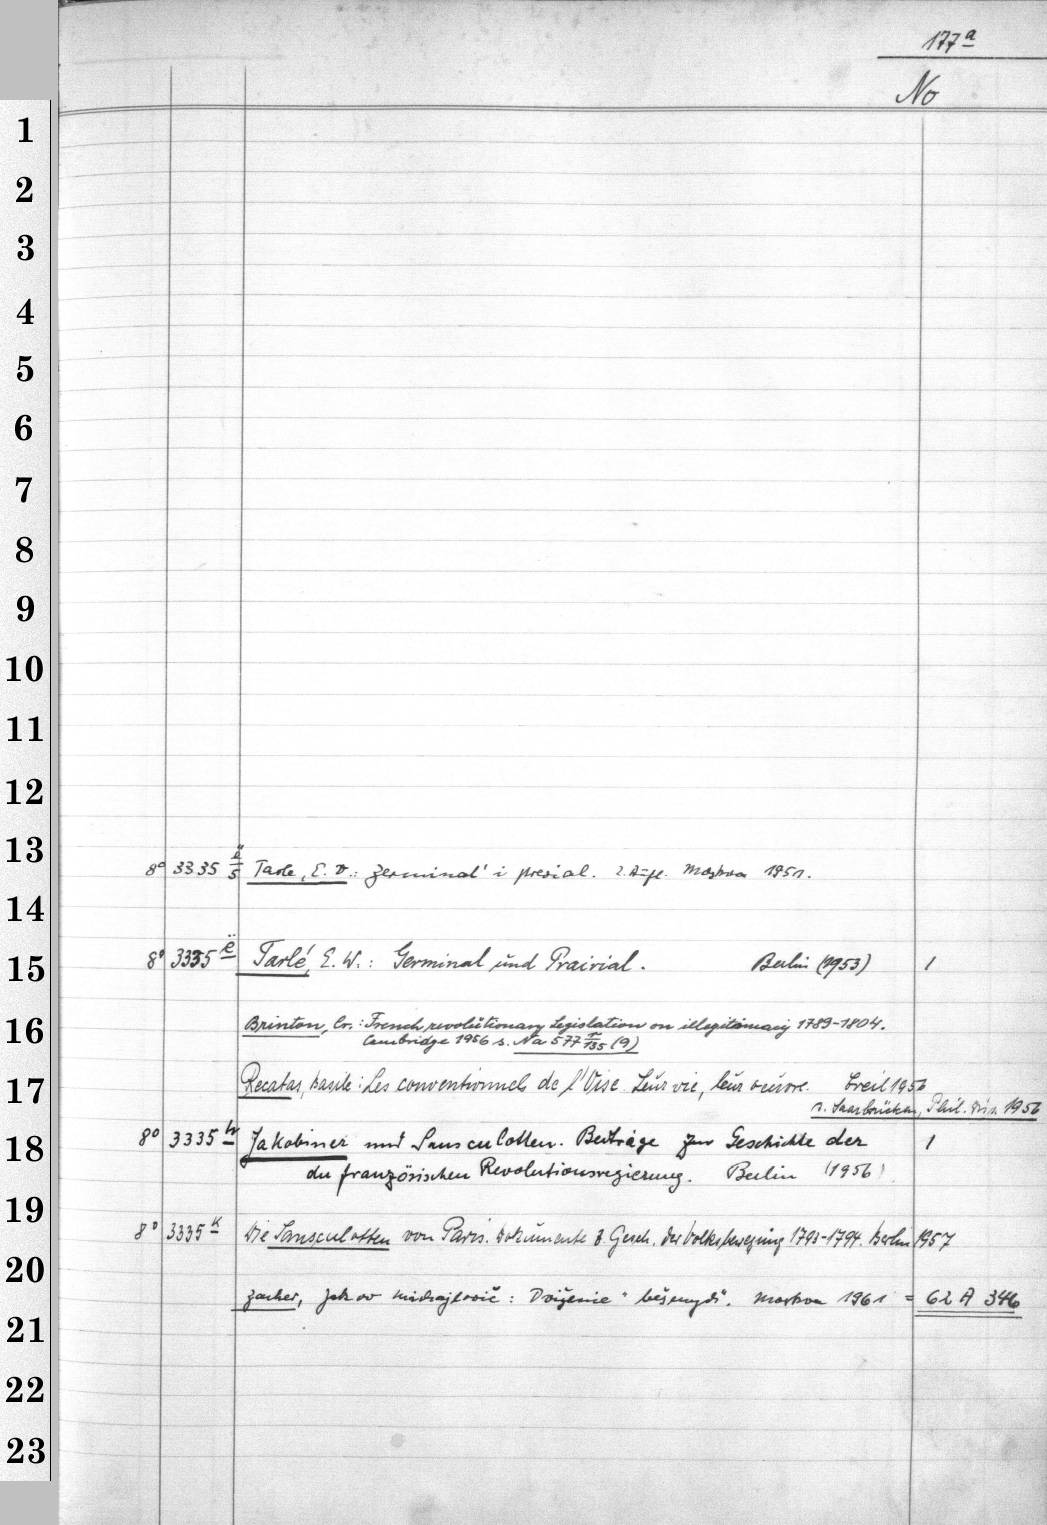 177a
No
1
2
3
4
5
6
7
8
9
10
11
12
13
8° 3335 ë/5 Tarle, E. V.: Žerminal' i prerial. 2. Aufl. Moskva 1951.
14
15 8° 3335 ë Tarlé, E. W.: Germinal und Prairial. Berlin (1953) 1
16 Brinton, Cr.: French revolutionary Legislation on illegitimacy 1789-1804.
Cambridge 1936 s. Na 577 (9)
17 Recatas, basile: Les conventionnels de l'Oise. Leur vie, leur oeuvre. Creil 1956
s. Saarbrücken, Phil. Diss. 1956
18 8° 3335 h Jakobiner und Sansculotten. Beiträge zur Geschichte der
der französischen Revolutionsregierung. Berlin (1956) 1
19 8° 3335 k Die Sansculotten von Paris. Dokumente z. Gesch. der Volksbewegung 1793-1794. Berlin 1957
20 Zacher, Jakov Michajlovič: Dviženie "bešenych". Moskva 1961 = 62 A 346
21
22
23